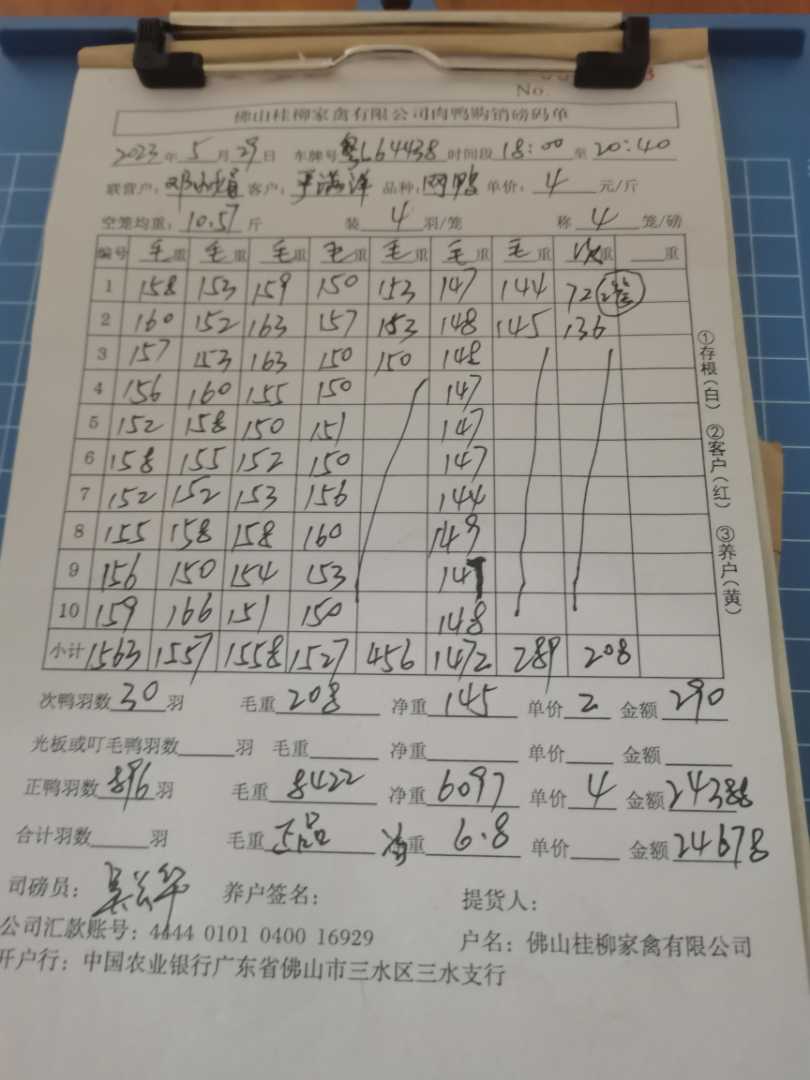 No.
佛山桂柳家禽有限公司肉鸭购销磅码单
2023年5月29日 车牌号粤L64438时间段18:00至20:40
联营户: 客户: 品种: 网鸭 单价: 4 元/斤
空笼均重: 10.57斤 装 4 羽/笼 称 4 笼/磅
编号 毛重 毛重 毛重 毛重 毛重 毛重 毛重 次重 重
1 158 153 159 150 153 147 144 72 2笼
2 160 152 163 157 153 148 145 136
3 157 153 163 150 150 148
4 156 160 155 150 147
5 152 158 150 151 147
6 158 155 152 150 147
7 152 152 153 156 144
8 155 158 158 160 149
9 156 150 154 153 147
10 159 166 151 150 148
小计 1563 1557 1558 1527 456 1472 289 208
①存根(白) ②客户(红) ③养户(黄)
次鸭羽数 30 羽 毛重 208 净重 145 单价 2 金额 290
光板或叮毛鸭羽数 羽 毛重 净重 单价 金额
正鸭羽数 896 羽 毛重 8422 净重 6097 单价 4 金额 24388
合计羽数 羽 毛重 正品 均重 6.8 单价 金额 24678
司磅员: 养户签名: 提货人:
公司汇款账号: 4444 0101 0400 16929 户名: 佛山桂柳家禽有限公司
开户行: 中国农业银行广东省佛山市三水区三水支行